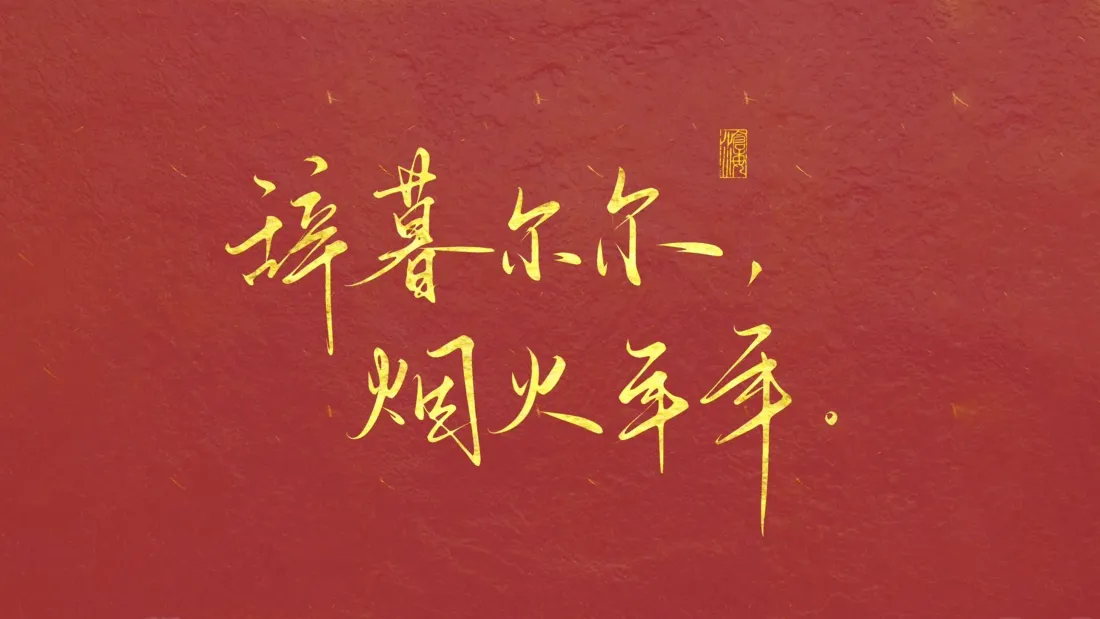 辞暮尔尔，
烟火年年。
滄海